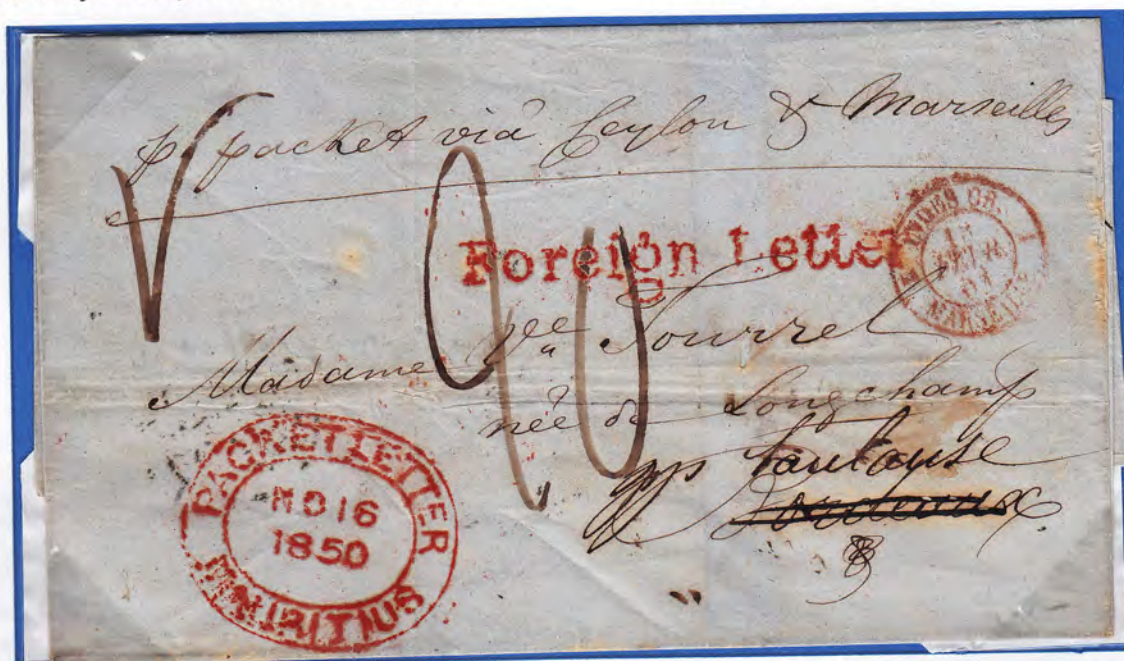 p packet via Ceylon & Marseilles
Foreign Letter
90
Madame Vve Tourrel
née de Longchamp
Toulouse
Bordeaux
PACKET LETTER
NO 16
1850
MAURITIUS
MARSEILLE